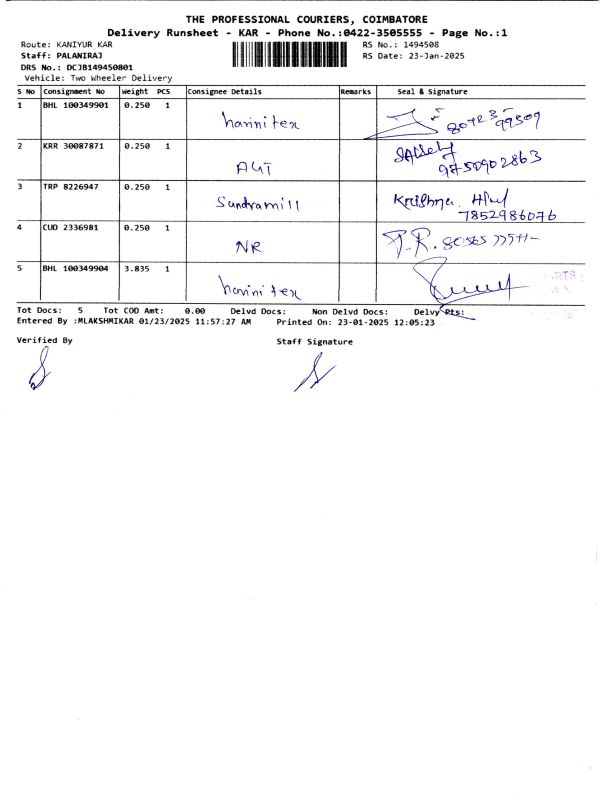 THE PROFESSIONAL COURIERS, COIMBATORE
Delivery Runsheet - KAR - Phone No.:0422-3505555 - Page No.:1
Route: KANIYUR KAR RS No.: 1494508
Staff: PALANIRAJ RS Date: 23-Jan-2025
DRS No.: DCJB149450801
Vehicle: Two Wheeler Delivery
S No Consignment No Weight PCS Consignee Details Remarks Seal & Signature
1 BHL 100349901 0.250 1
harinitex 80723 99509
2 KRR 30087871 0.250 1
9750902863
3 TRP 8226947 0.250 1
Sundramill Krishna
7852986076
4 CUD 2336981 0.250 1
NR
5 BHL 100349904 3.835 1
harinitex
Tot Docs: 5 Tot COD Amt: 0.00 Delvd Docs: Non Delvd Docs: Delvy Pts:
Entered By :MLAKSHMIKAR 01/23/2025 11:57:27 AM Printed On: 23-01-2025 12:05:23
Verified By Staff Signature